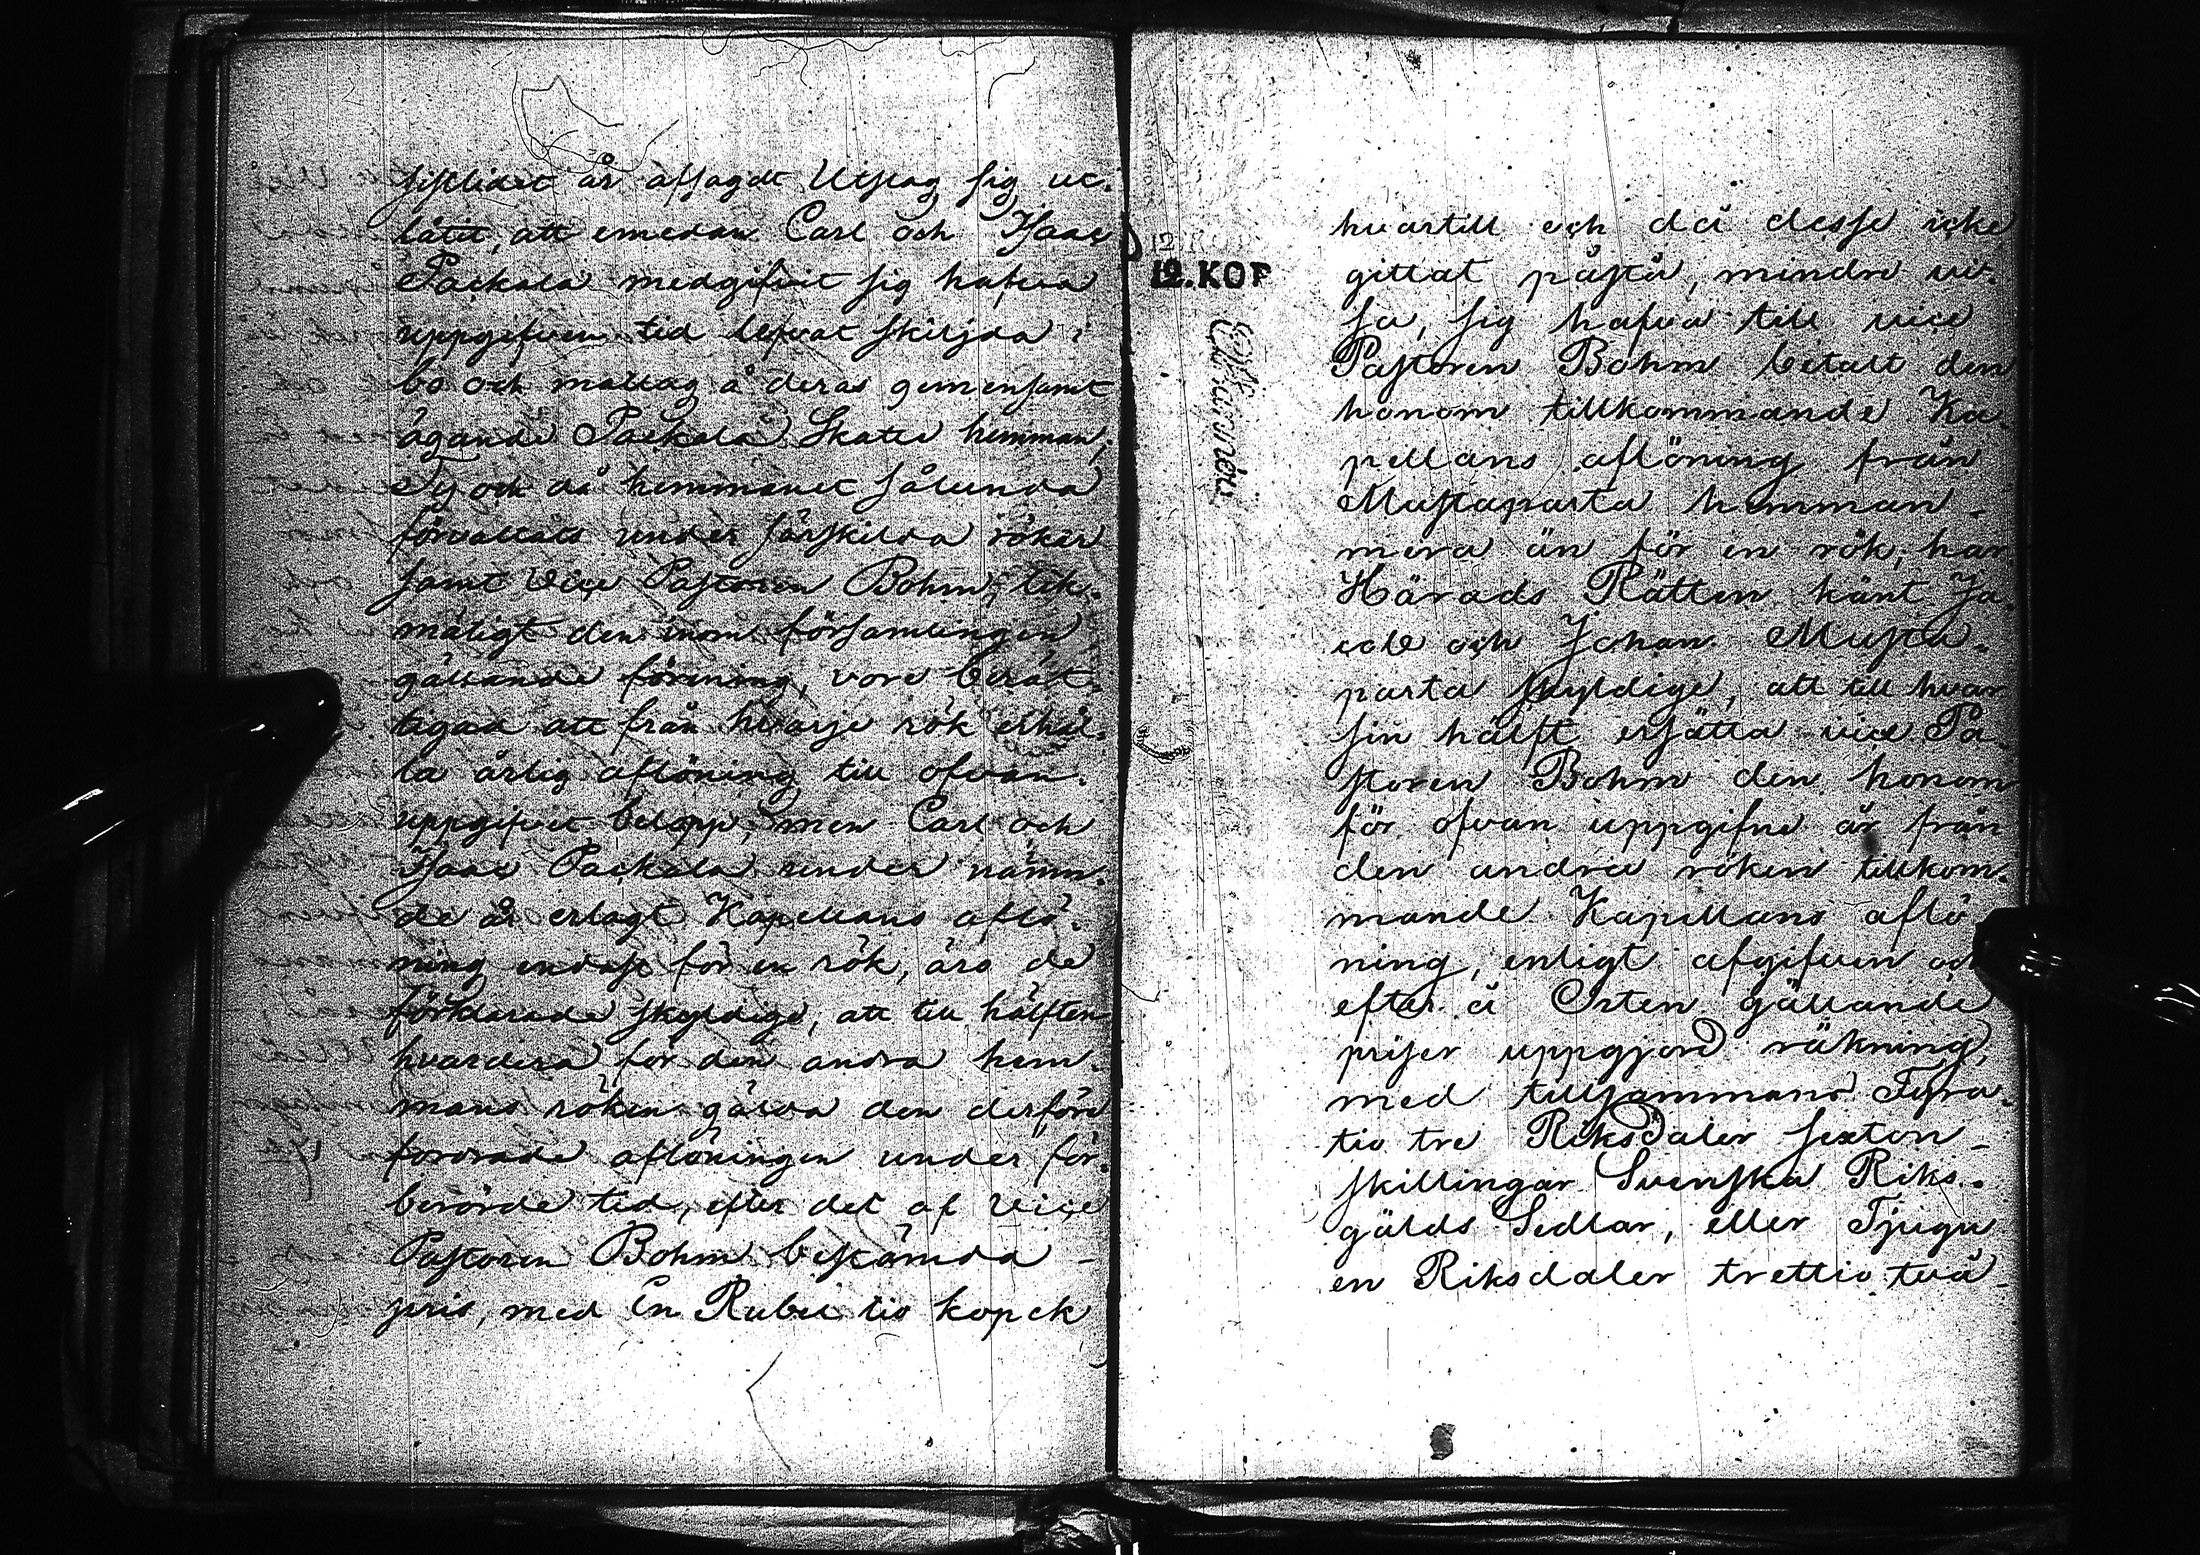 sistlidet år afsagdt Utslag sig ut-
låtit, att emedan Carl och Isaac
Packala medgifvit sig hafva
uppgifven tid lefvat skiljda i
bo och matlag å deras gemensamt
ägande Packala Skatte hemman;
Ty och då hemmanet sålunda
förvaltats under särskilda rökar
samt Vice Pastoren Bohm, lik-
mätigt den inom församlingen
gällande förening, vore berät-
tigad att från hvarje rök erhål-
la årlig aflöning till ofvan-
uppgifvit belopp, men Carl och
Isaac Packala under nämn-
de år erlagt Kapellans aflö-
ning endast för en rök, äro de
förklarade skyldige, att till hälften
hvardera för den andra hem-
mans röken gälda den derföre
fordrade aflöningen under för-
berörde tid, efter det af Vice
Pastoren Bohm bestämda
pris, med En Rubel tio kopek
12. KOP
hvartill och då desse icke
gittat påstå, mindre vi-
sa, sig hafva till vice
Pastoren Bohm betalt den
honom tillkommande Ka-
pellans aflöning från
Mustaparta hemman
mera än för en rök; har
Härads Rätten känt Ja-
cob och Johan Musta-
parta skyldige, att till hvar
sin hälft ersätta vice Pa-
storen Bohm den honom
för ofvan uppgifne år från
den andra röken tillkom-
mande Kapellans aflö-
ning, enligt afgifven och
efter å Orten gällande
priser uppgjord räkning,
med tillsammans Fyra-
tio tre Riksdaler sexton
skillingar Svenska Riks-
gälds Sedlar, eller Tjugu
en Riksdaler trettio två